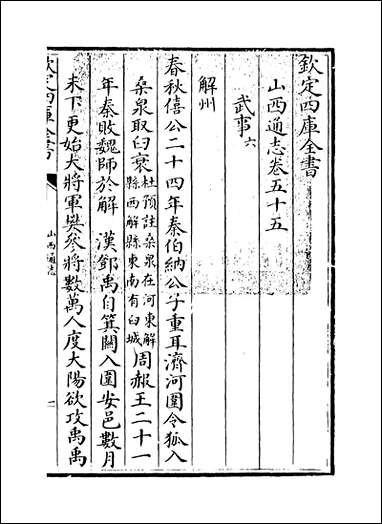 欽定四庫全書
山西通志卷五十五
武事六
解州
春秋僖公二十四年秦伯納公子重耳濟河圍令狐入
桑泉取臼衰杜預註桑泉在河東解縣西解縣東南有臼城周赧王二十一
年秦敗魏師於解　漢鄧禹自箕關入圍安邑數月
未下更始大將軍樊參將數萬人度大陽欲攻禹禹
欽定四庫全書
山西通志
一